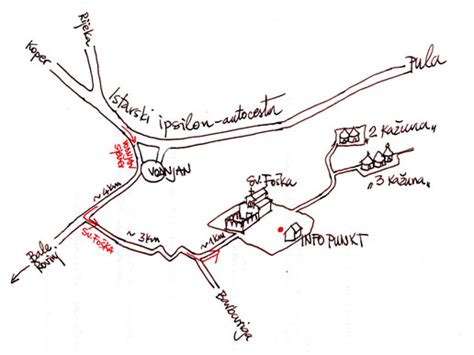 Rijeka
Koper
Pula
Istarski ipsilon-autocesta
VODNJAN
SJEVER
VODNJAN
"2 Kažuna"
"3 Kažuna"
Sv. Foška
~4km
Sv. Foška
~3km
~1km
INFO PUNKT
Bale
Rovinj
Barbariga